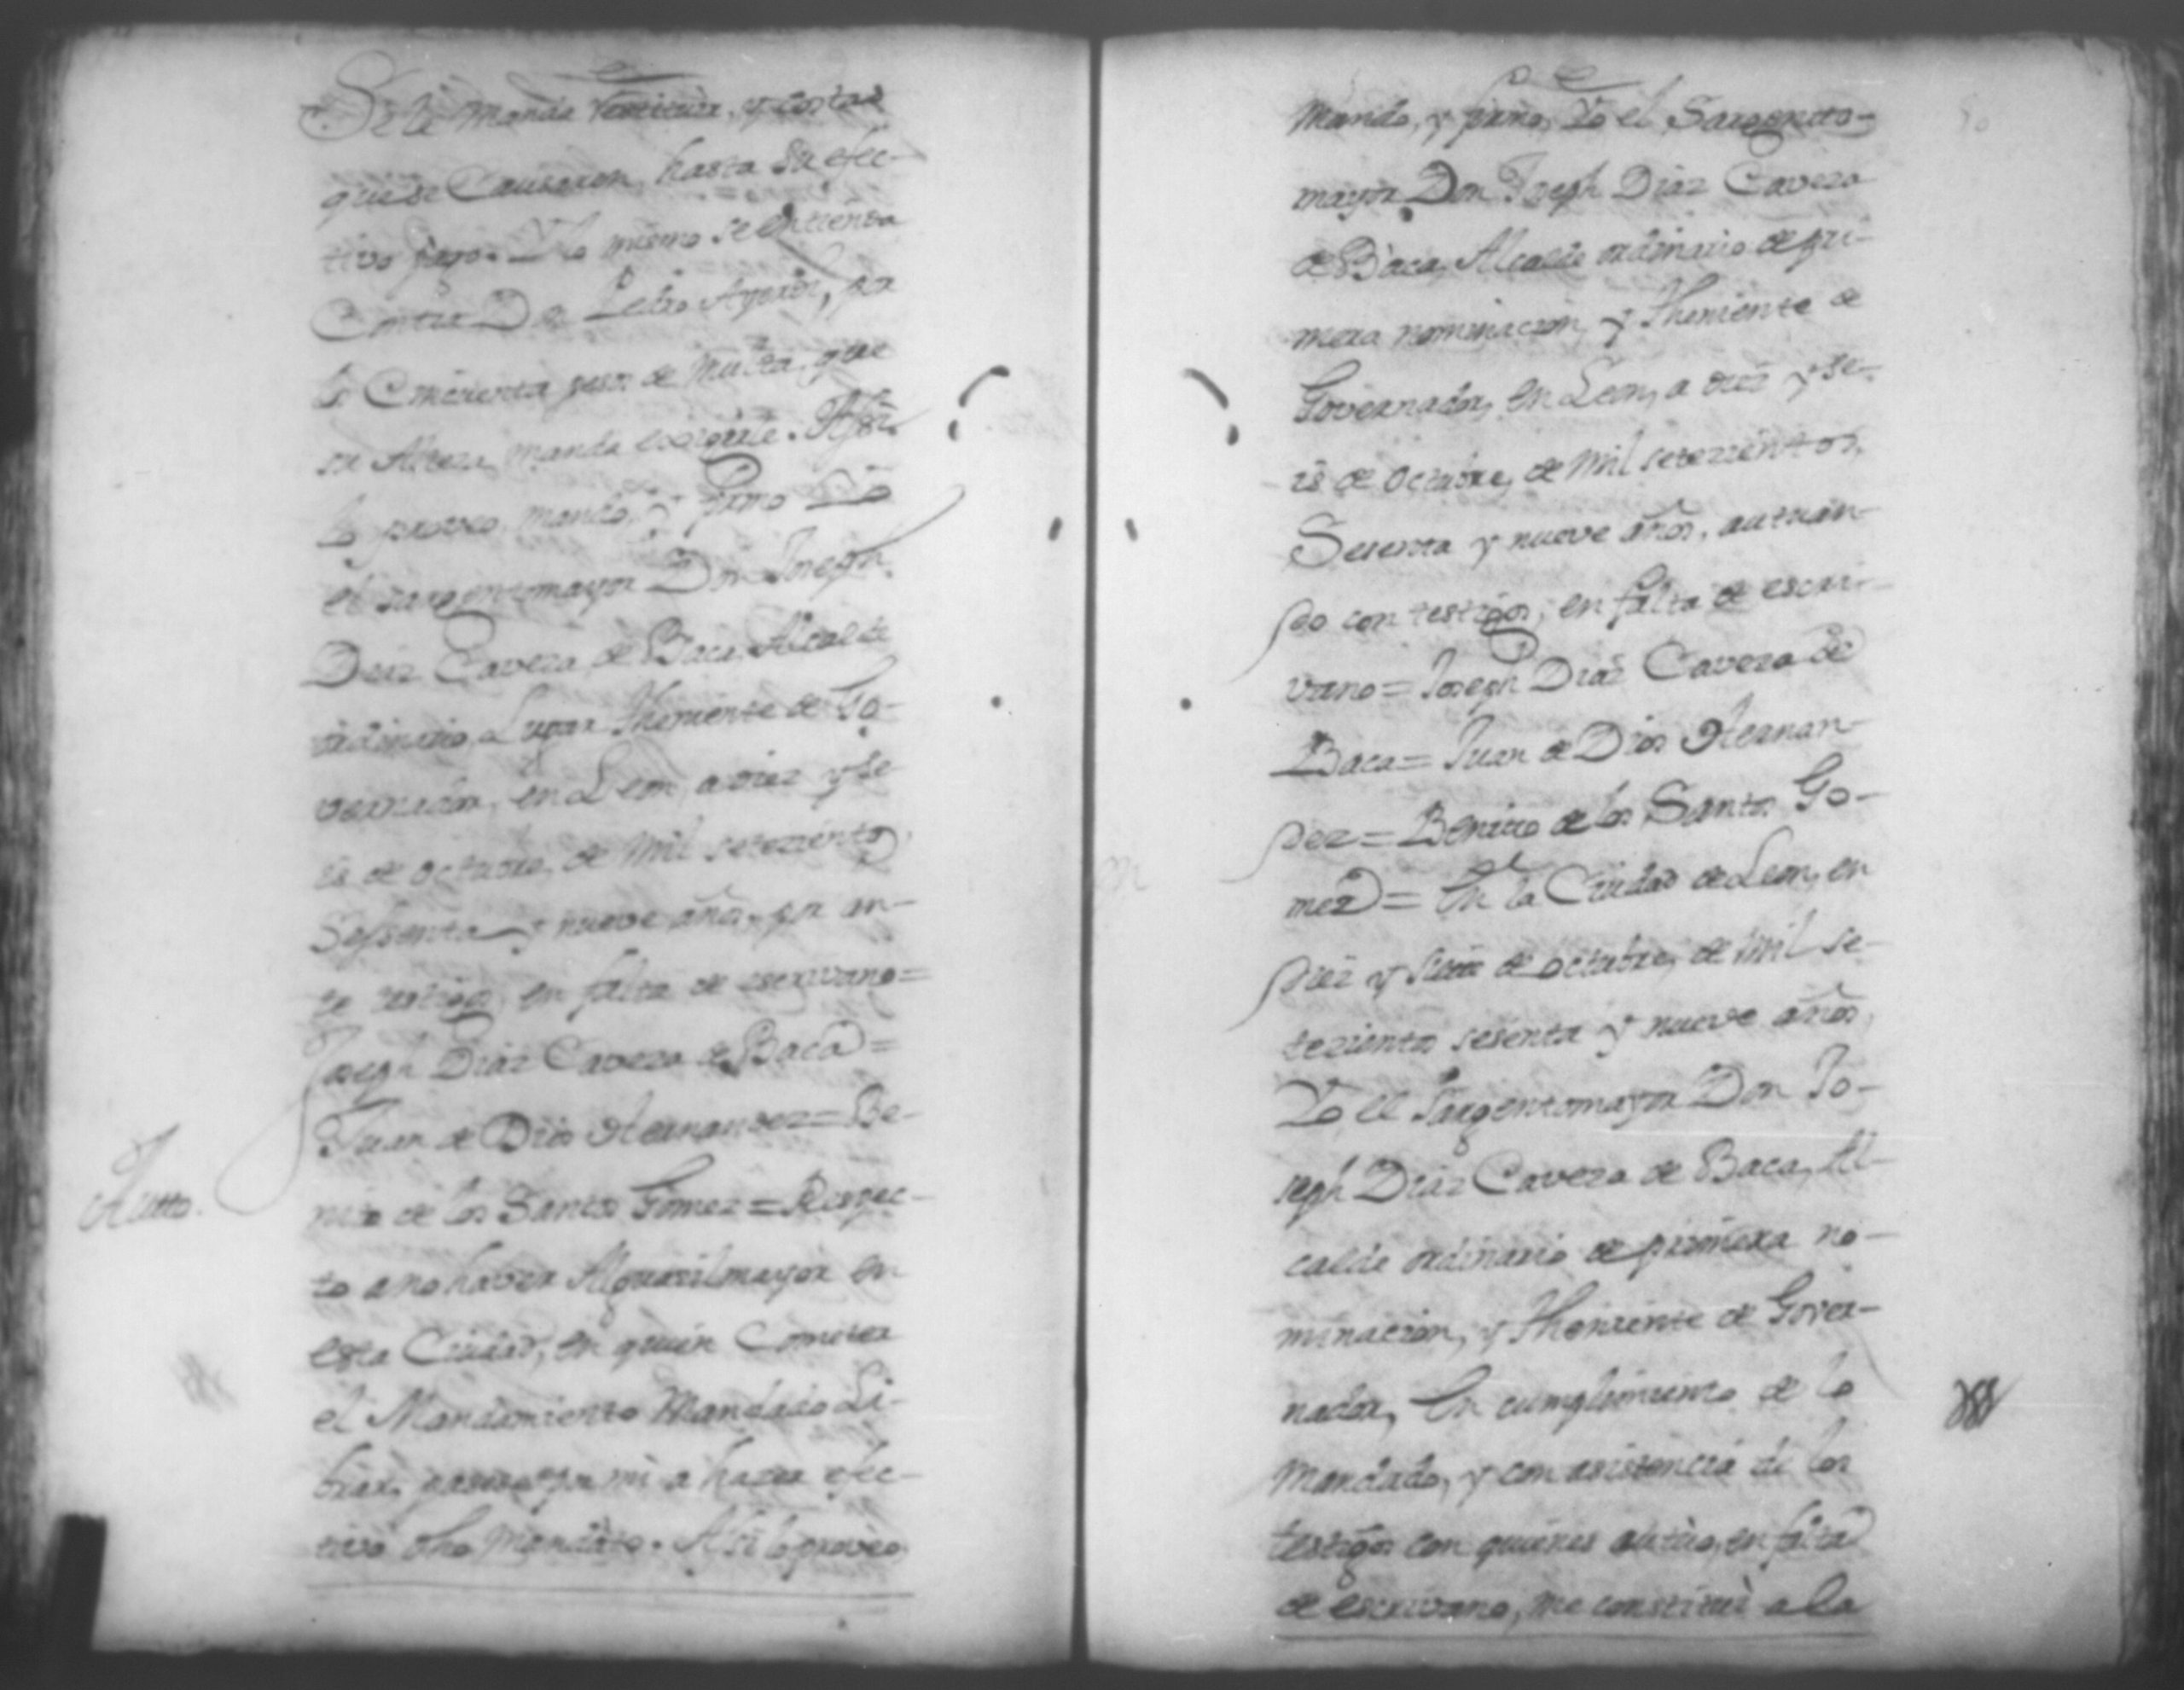 Se le manda restituir, y costas
que se Causaren, hasta su efec-
tivo pago. Y lo mismo se entienda
Contra Dn Pedro Ayerdi, por
los Cincuenta pesos de multa, que
su Alteza, manda exigirle. Assi
lo proveo, mando, y firmo Yo
el sargentomayor Don Joseph
Diaz Caveza de Baca Alcalde
ordinario, Lugar Theniente de Go-
vernador, en Leon, a diez y se-
is de octubre, de mil setezientos,
Sessenta y nueve años, por an-
te testigos, en falta de escrivano=
Joseph Diaz Caveza de Baca=
Juan de Dios Hernandez= Be-
nito de los Santos Gomez= Respec-
Autto.
to a no haver Alguazilmayor en
esta Ciudad, en quien Cometer
el Mandamiento mandado Li-
brar, pasese por mi a hazer efec-
tivo dho mandato. Asi lo proveo,
mando, y firmo, Yo el Sargento-
mayor Don Joseph Diaz Caveza
de Baca, Alcalde ordinario de pri-
mera nominacion, y Theniente de
Governador, en Leon, a diez y se-
is de Octubre, de mil setezientos,
Sesenta y nueve años, autuan-
do con testigos, en falta de escri-
vano= Joseph Diaz Caveza de
Baca= Juan de Dios Hernan-
dez= Benito de los Santos Go-
mez= En la Ciudad de Leon, en
diez y siete de octubre, de mil se-
tezientos sesenta y nueve años,
Yo el Sargentomayor Don Jo-
seph Diaz Caveza de Baca, Al-
calde ordinario de primera no-
minacion, y Theniente de Gover-
nador, En cumplimiento de lo
mandado, y con asistencia de los
testigos con quienes autuo, en falta
de escrivano, me constitui a la